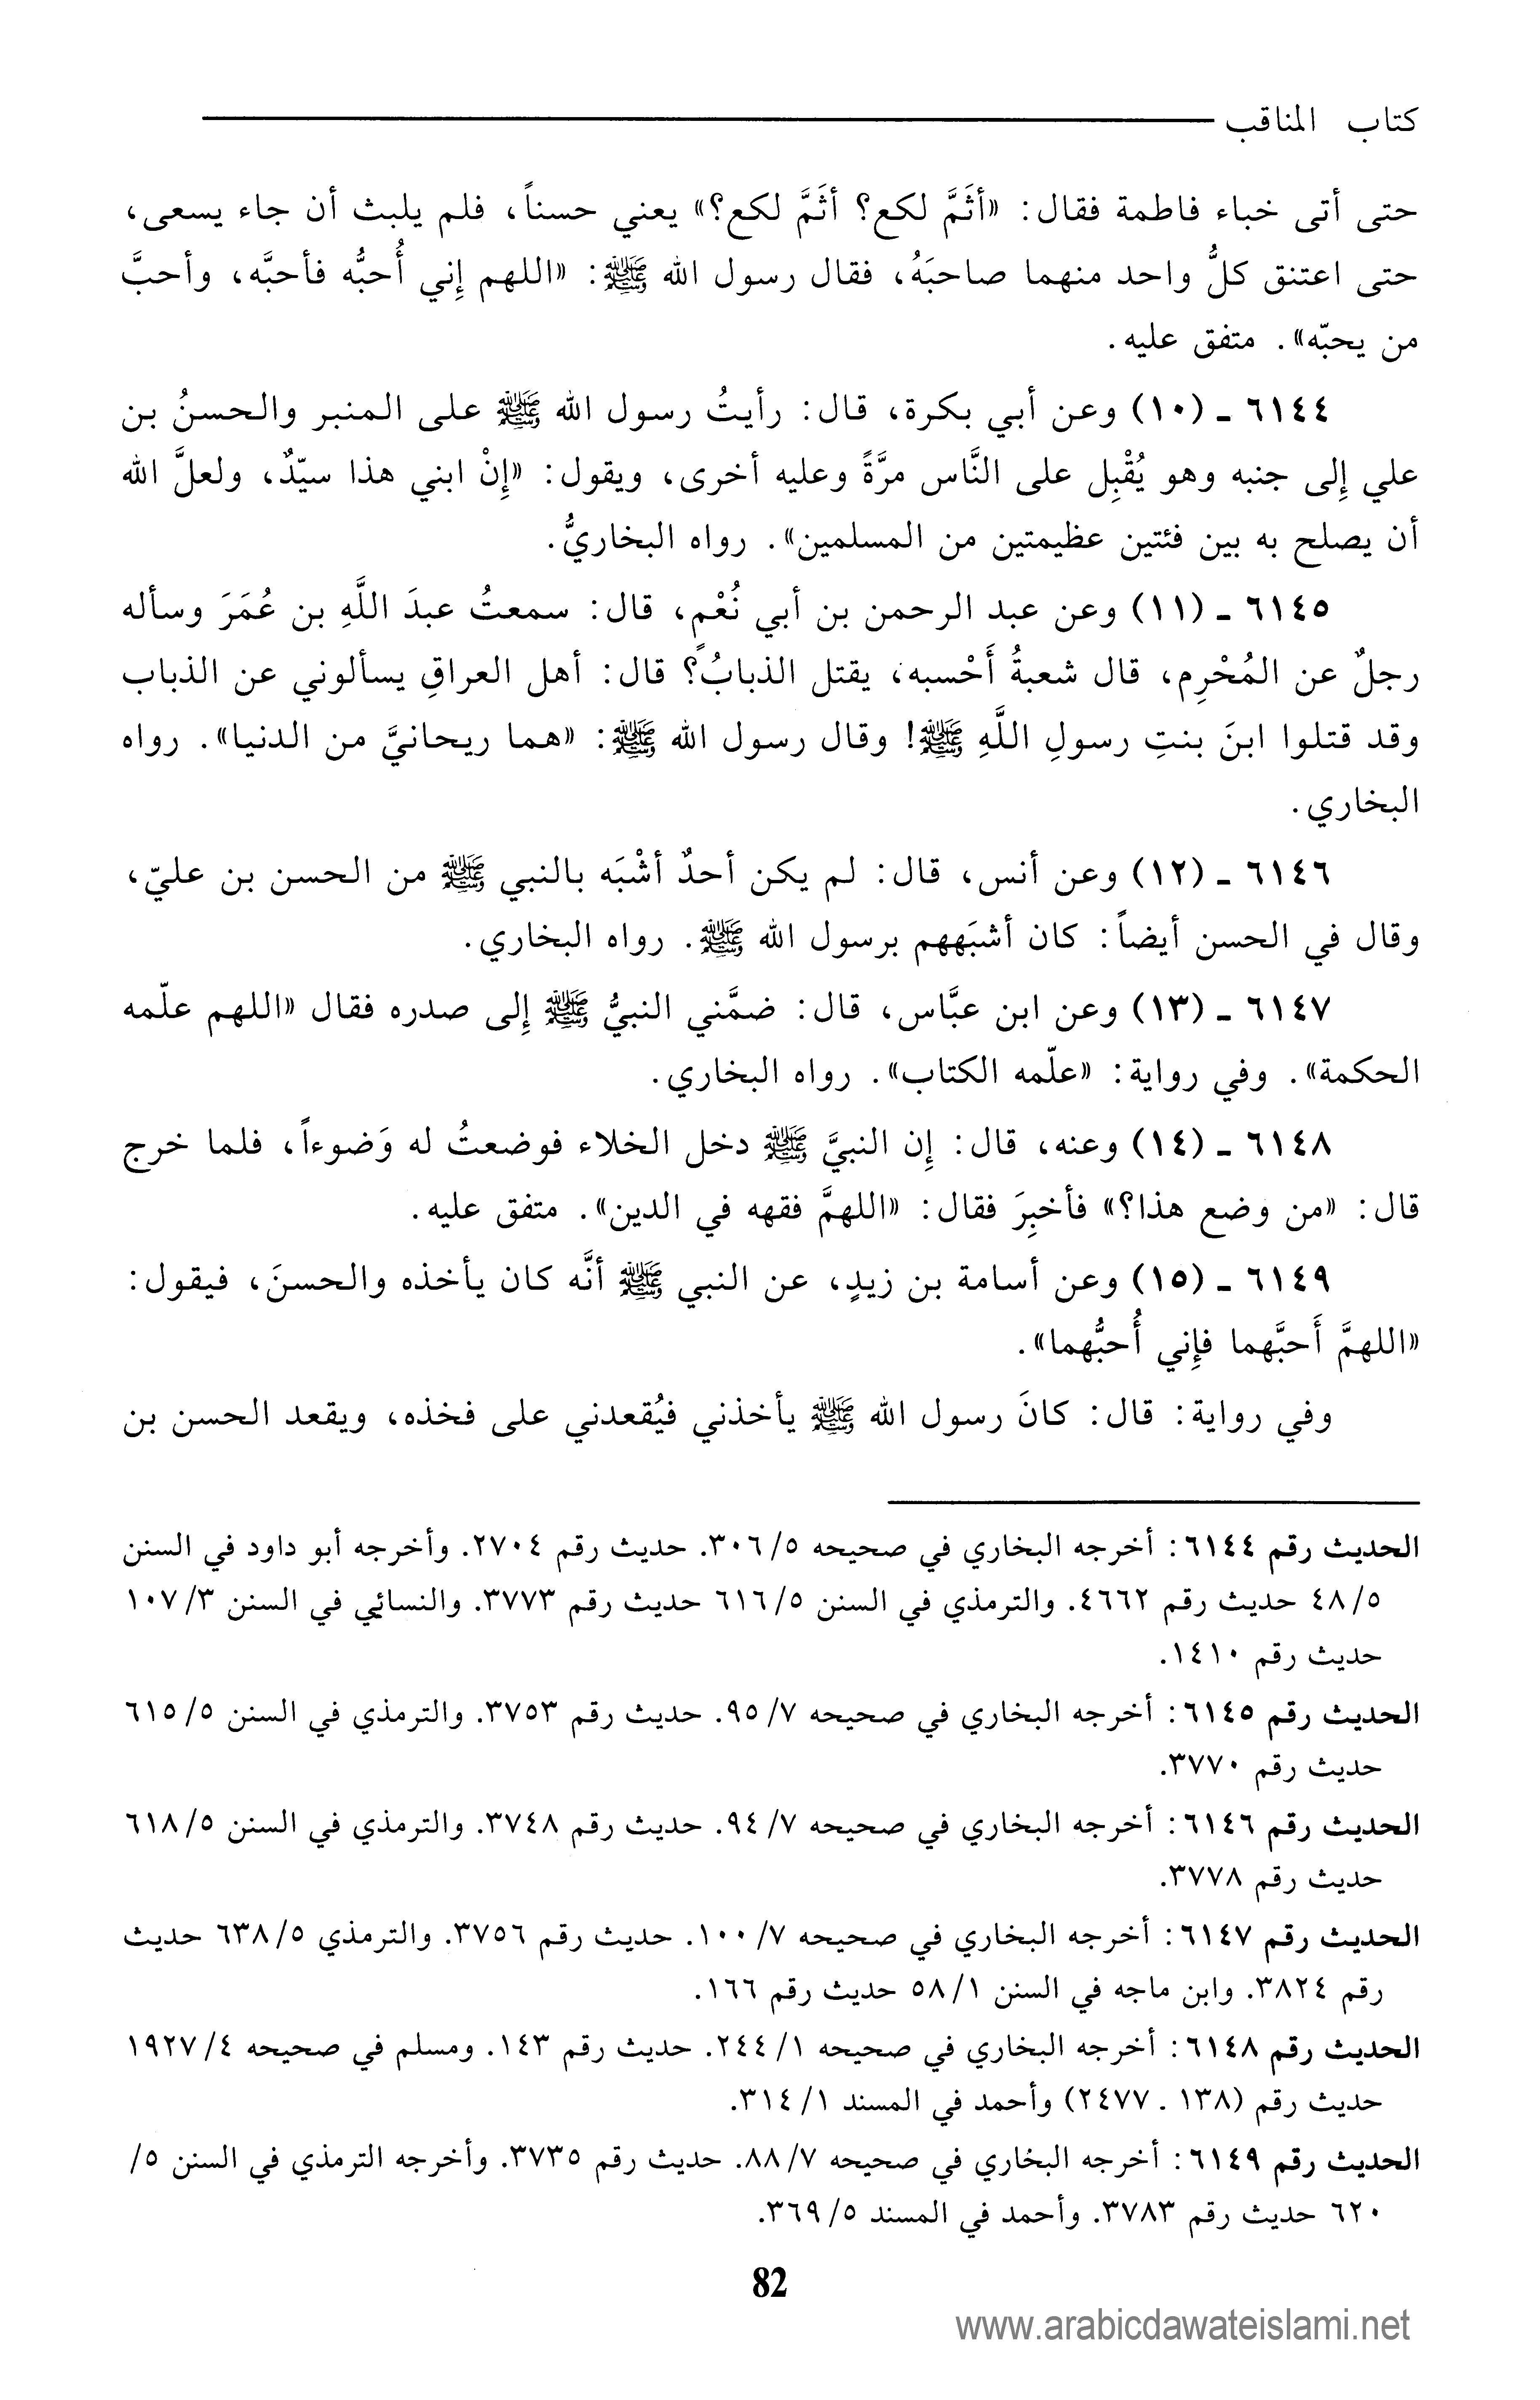 كتاب المناقب
حتى أتى خباء فاطمة فقال: «أثَمَّ لكع؟ أثَمَّ لكع؟» يعني حسناً، فلم يلبث أن جاء يسعى،
حتى اعتنق كلُّ واحد منهما صاحبَهُ، فقال رسول الله ﷺ: «اللهم إِني أُحبُّه فأحبَّه، وأحبَّ
من يحبّه». متفق عليه.
٦١٤٤ ـ (١٠) وعن أبي بكرة، قال: رأيتُ رسول الله ﷺ على المنبر والحسنُ بن
علي إِلى جنبه وهو يُقْبِل على النَّاس مرَّةً وعليه أخرى، ويقول: «إِنْ ابني هذا سيّدٌ، ولعلَّ الله
أن يصلح به بين فئتين عظيمتين من المسلمين». رواه البخاريُّ.
٦١٤٥ ـ (١١) وعن عبد الرحمن بن أبي نُعْمٍ، قال: سمعتُ عبدَ اللَّهِ بن عُمَرَ وسأله
رجلٌ عن المُحْرِم، قال شعبةُ أَحْسبه، يقتل الذبابُ؟ قال: أهل العراقِ يسألوني عن الذباب
وقد قتلوا ابنَ بنتِ رسولِ اللَّهِ ﷺ! وقال رسول الله ﷺ: «هما ريحانيَّ من الدنيا». رواه
البخاري.
٦١٤٦ ـ (١٢) وعن أنس، قال: لم يكن أحدٌ أشْبَه بالنبي ﷺ من الحسن بن عليّ،
وقال في الحسن أيضاً: كان أشبَههم برسول الله ﷺ. رواه البخاري.
٦١٤٧ ـ (١٣) وعن ابن عبَّاس، قال: ضمَّني النبيُّ ﷺ إِلى صدره فقال «اللهم علّمه
الحكمة». وفي رواية: «علّمه الكتاب». رواه البخاري.
٦١٤٨ ـ (١٤) وعنه، قال: إِن النبيَّ ﷺ دخل الخلاء فوضعتُ له وَضوءاً، فلما خرج
قال: «من وضع هذا؟» فأخبِرَ فقال: «اللهمَّ فقهه في الدين». متفق عليه.
٦١٤٩ ـ (١٥) وعن أسامة بن زيدٍ، عن النبي ﷺ أنَّه كان يأخذه والحسنَ، فيقول:
«اللهمَّ أَحبَّهما فإِني أُحبُّهما».
وفي رواية: قال: كانَ رسول الله ﷺ يأخذني فيُقعدني على فخذه، ويقعد الحسن بن
الحديث رقم ٦١٤٤: أخرجه البخاري في صحيحه ٥/ ٣٠٦. حديث رقم ٢٧٠٤. وأخرجه أبو داود في السنن
٥/ ٤٨ حديث رقم ٤٦٦٢. والترمذي في السنن ٥/ ٦١٦ حديث رقم ٣٧٧٣. والنسائي في السنن ٣/ ١٠٧
حديث رقم ١٤١٠.
الحديث رقم ٦١٤٥: أخرجه البخاري في صحيحه ٧/ ٩٥. حديث رقم ٣٧٥٣. والترمذي في السنن ٥/ ٦١٥
حديث رقم ٣٧٧٠.
الحديث رقم ٦١٤٦: أخرجه البخاري في صحيحه ٧/ ٩٤. حديث رقم ٣٧٤٨. والترمذي في السنن ٥/ ٦١٨
حديث رقم ٣٧٧٨.
الحديث رقم ٦١٤٧: أخرجه البخاري في صحيحه ٧/ ١٠٠. حديث رقم ٣٧٥٦. والترمذي ٥/ ٦٣٨ حديث
رقم ٣٨٢٤. وابن ماجه في السنن ١/ ٥٨ حديث رقم ١٦٦.
الحديث رقم ٦١٤٨: أخرجه البخاري في صحيحه ١/ ٢٤٤. حديث رقم ١٤٣. ومسلم في صحيحه ٤/ ١٩٢٧
حديث رقم (١٣٨ ـ ٢٤٧٧) وأحمد في المسند ١/ ٣١٤.
الحديث رقم ٦١٤٩: أخرجه البخاري في صحيحه ٧/ ٨٨. حديث رقم ٣٧٣٥. وأخرجه الترمذي في السنن ٥/
٦٢٠ حديث رقم ٣٧٨٣. وأحمد في المسند ٥/ ٣٦٩.
82
www.arabicdawateislami.net